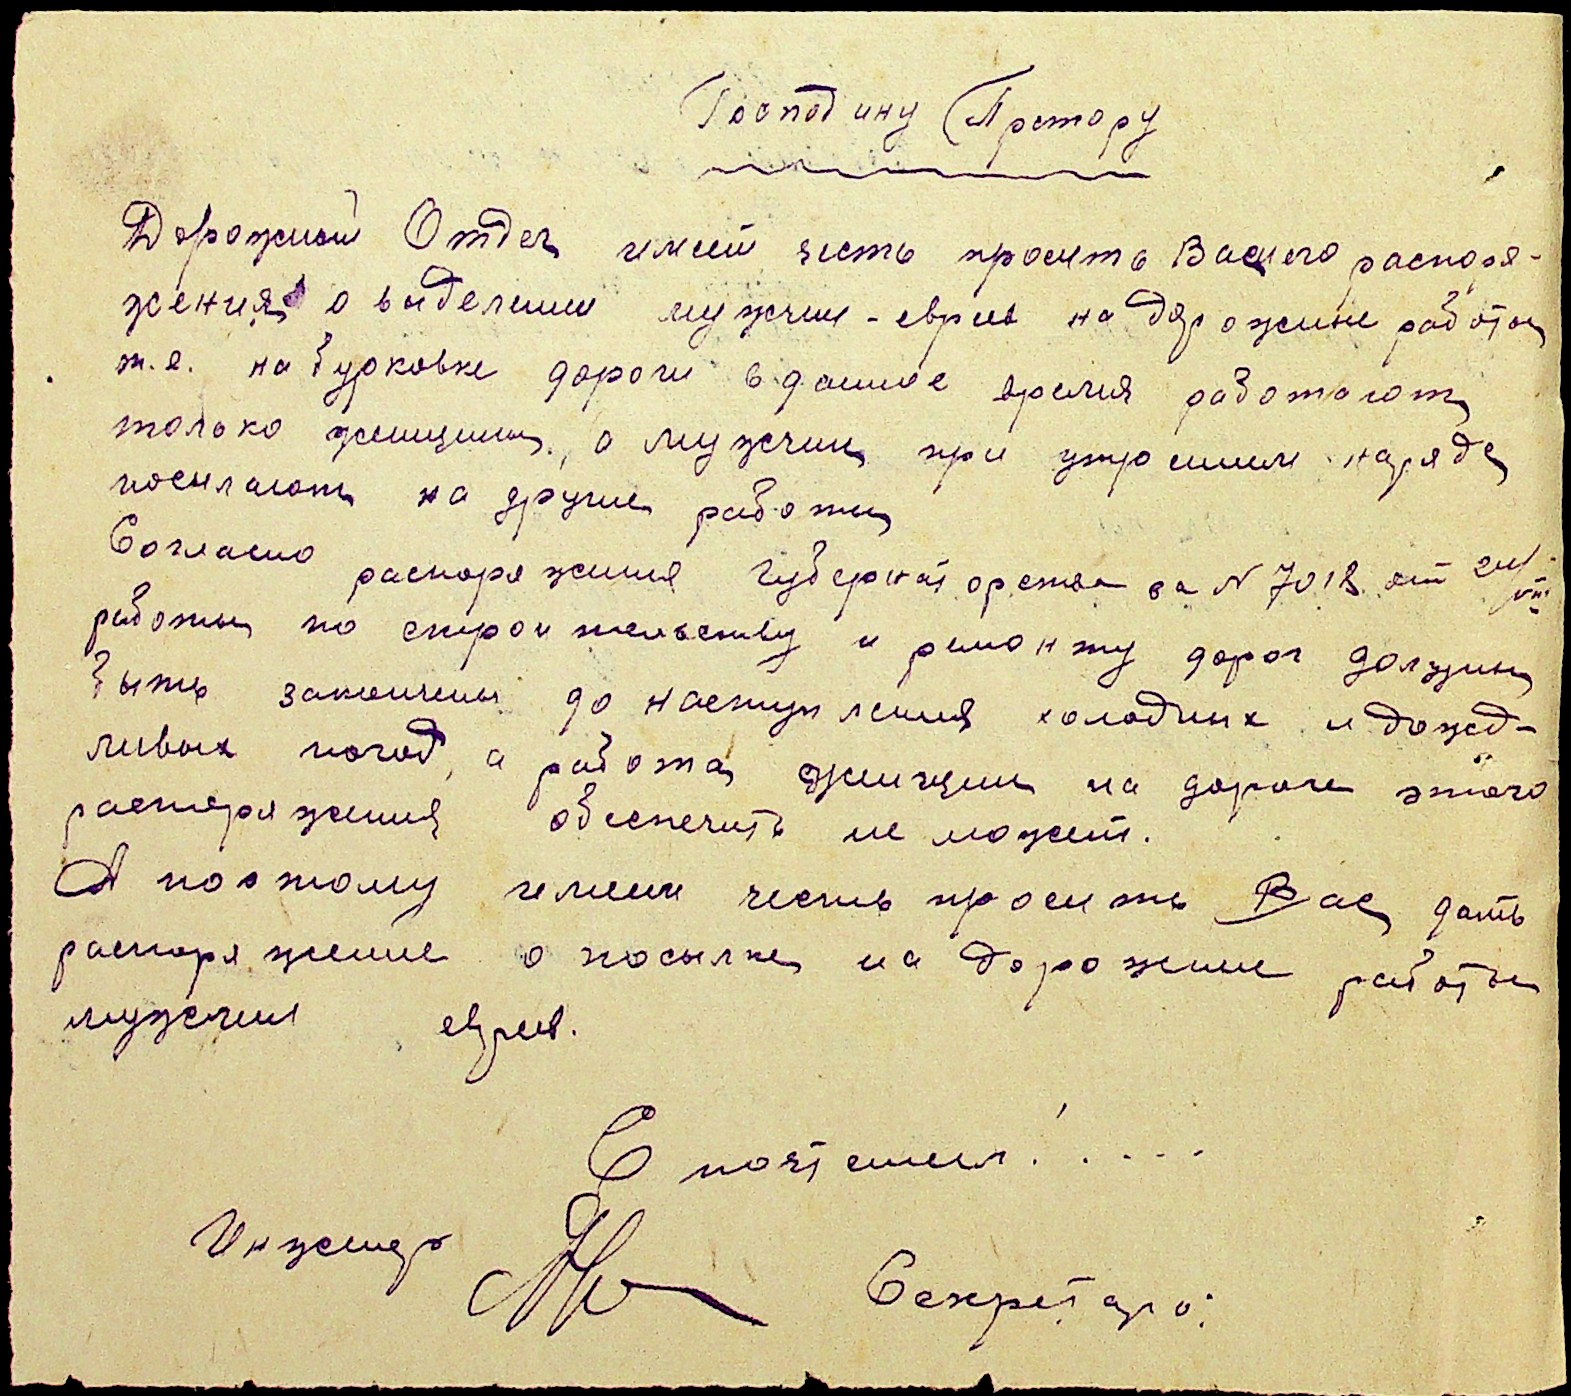 Господину Претору
Дорожный Отдел имеет честь просить Вашего распоря-
жения о выделении мужчин-евреев на дорожные работы
т.е. на бурковке дороги в данное время работают
только женщины, а мужчин при утреннем наряде
посылают на другие работы
Согласно распоряжения Губернаторства за N 7018 от
работы по строительству и ремонту дорог должны
быть закончены до наступления холодных и дожд-
ливых погод, а работа женщин на дороге этого
распоряжения обеспечить не может.
А поэтому имеем честь просить Вас дать
распоряжение о посылке на дорожные работы
мужчин евреев.
С почтением!....
Инженер
Секретарь: